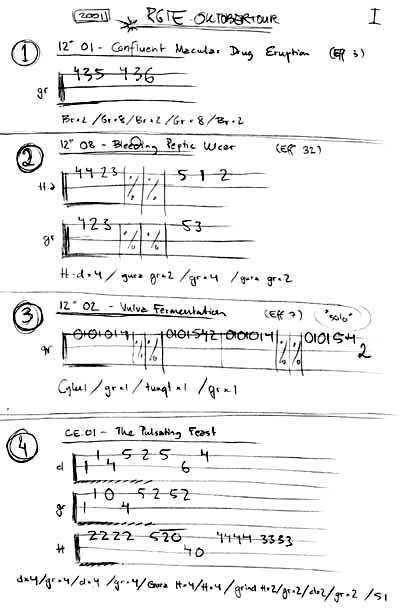 2001 RGTE-OKTOBERTOUR I
1 12" 01 - Confluent Macular Drug Eruption (Eff 3)
435 436
gr
Br=2 / Gr=8 / Br=2 / Gr=8 / Br=2
2 12" 08 - Bleeding Peptic Ulcer (Eff 32)
4423 % % 5 1 2
423 % % 53
gr
H-d=4 / gura gr=2 / gr=4 / gura gr=2
3 12" 02 - Vulva Fermentation (Eff 7) "solo"
0101014 % % 0101542 0101014 % % 010154 2
gr
/ gr=1 / tungt=1 / gr=1
4 CE.01 - The Pulsating Feast
1 1 4 5 2 5 6 4
d
1 1 0 4 5 2 5 2
gr
2222 520 40 4444 3333
H
d=4 / gr=4 / d=4 / gr=4 / Gura H=4 / H=4 / grind H=2 / gr=2 / d=2 / gr=2 / S1